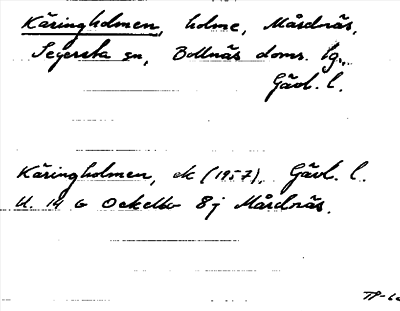 Käringholmen, holme, Mårdnäs,
Segersta sn, Bollnäs doms. lg.,
Gävl. l.
Käringholmen, ek (1957), Gävl. l.
U. 14 G Ockelbo 8j Mårdnäs.
TP-62